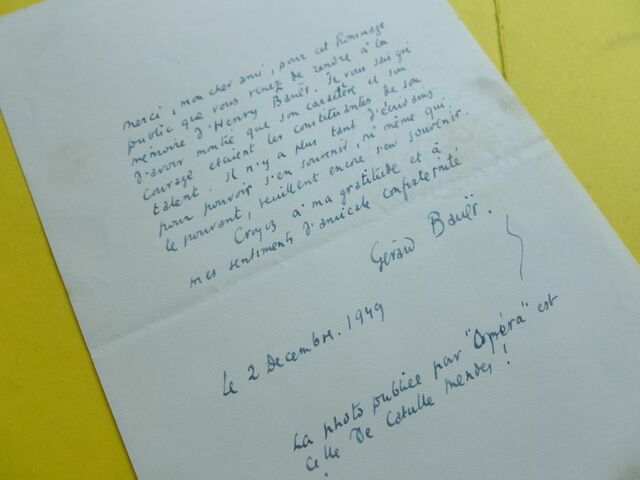 Merci, mon cher ami, pour cet hommage
public que vous venez de rendre à la
mémoire d'Henry Bauër. Je vous sais gré
d'avoir montré que son caractère et son
courage étaient les constituantes de son
talent. Il n'y a plus tant d'écrivains
pour pouvoir s'en souvenir, ni même qui,
le pouvant, veuillent encore s'en souvenir.
Croyez à ma gratitude et à
mes sentiments d'amicale confraternité
Gérard Bauër.
Le 2 Decembre. 1949
La photo publiée par "Opéra" est
celle De Catulle Mendès !